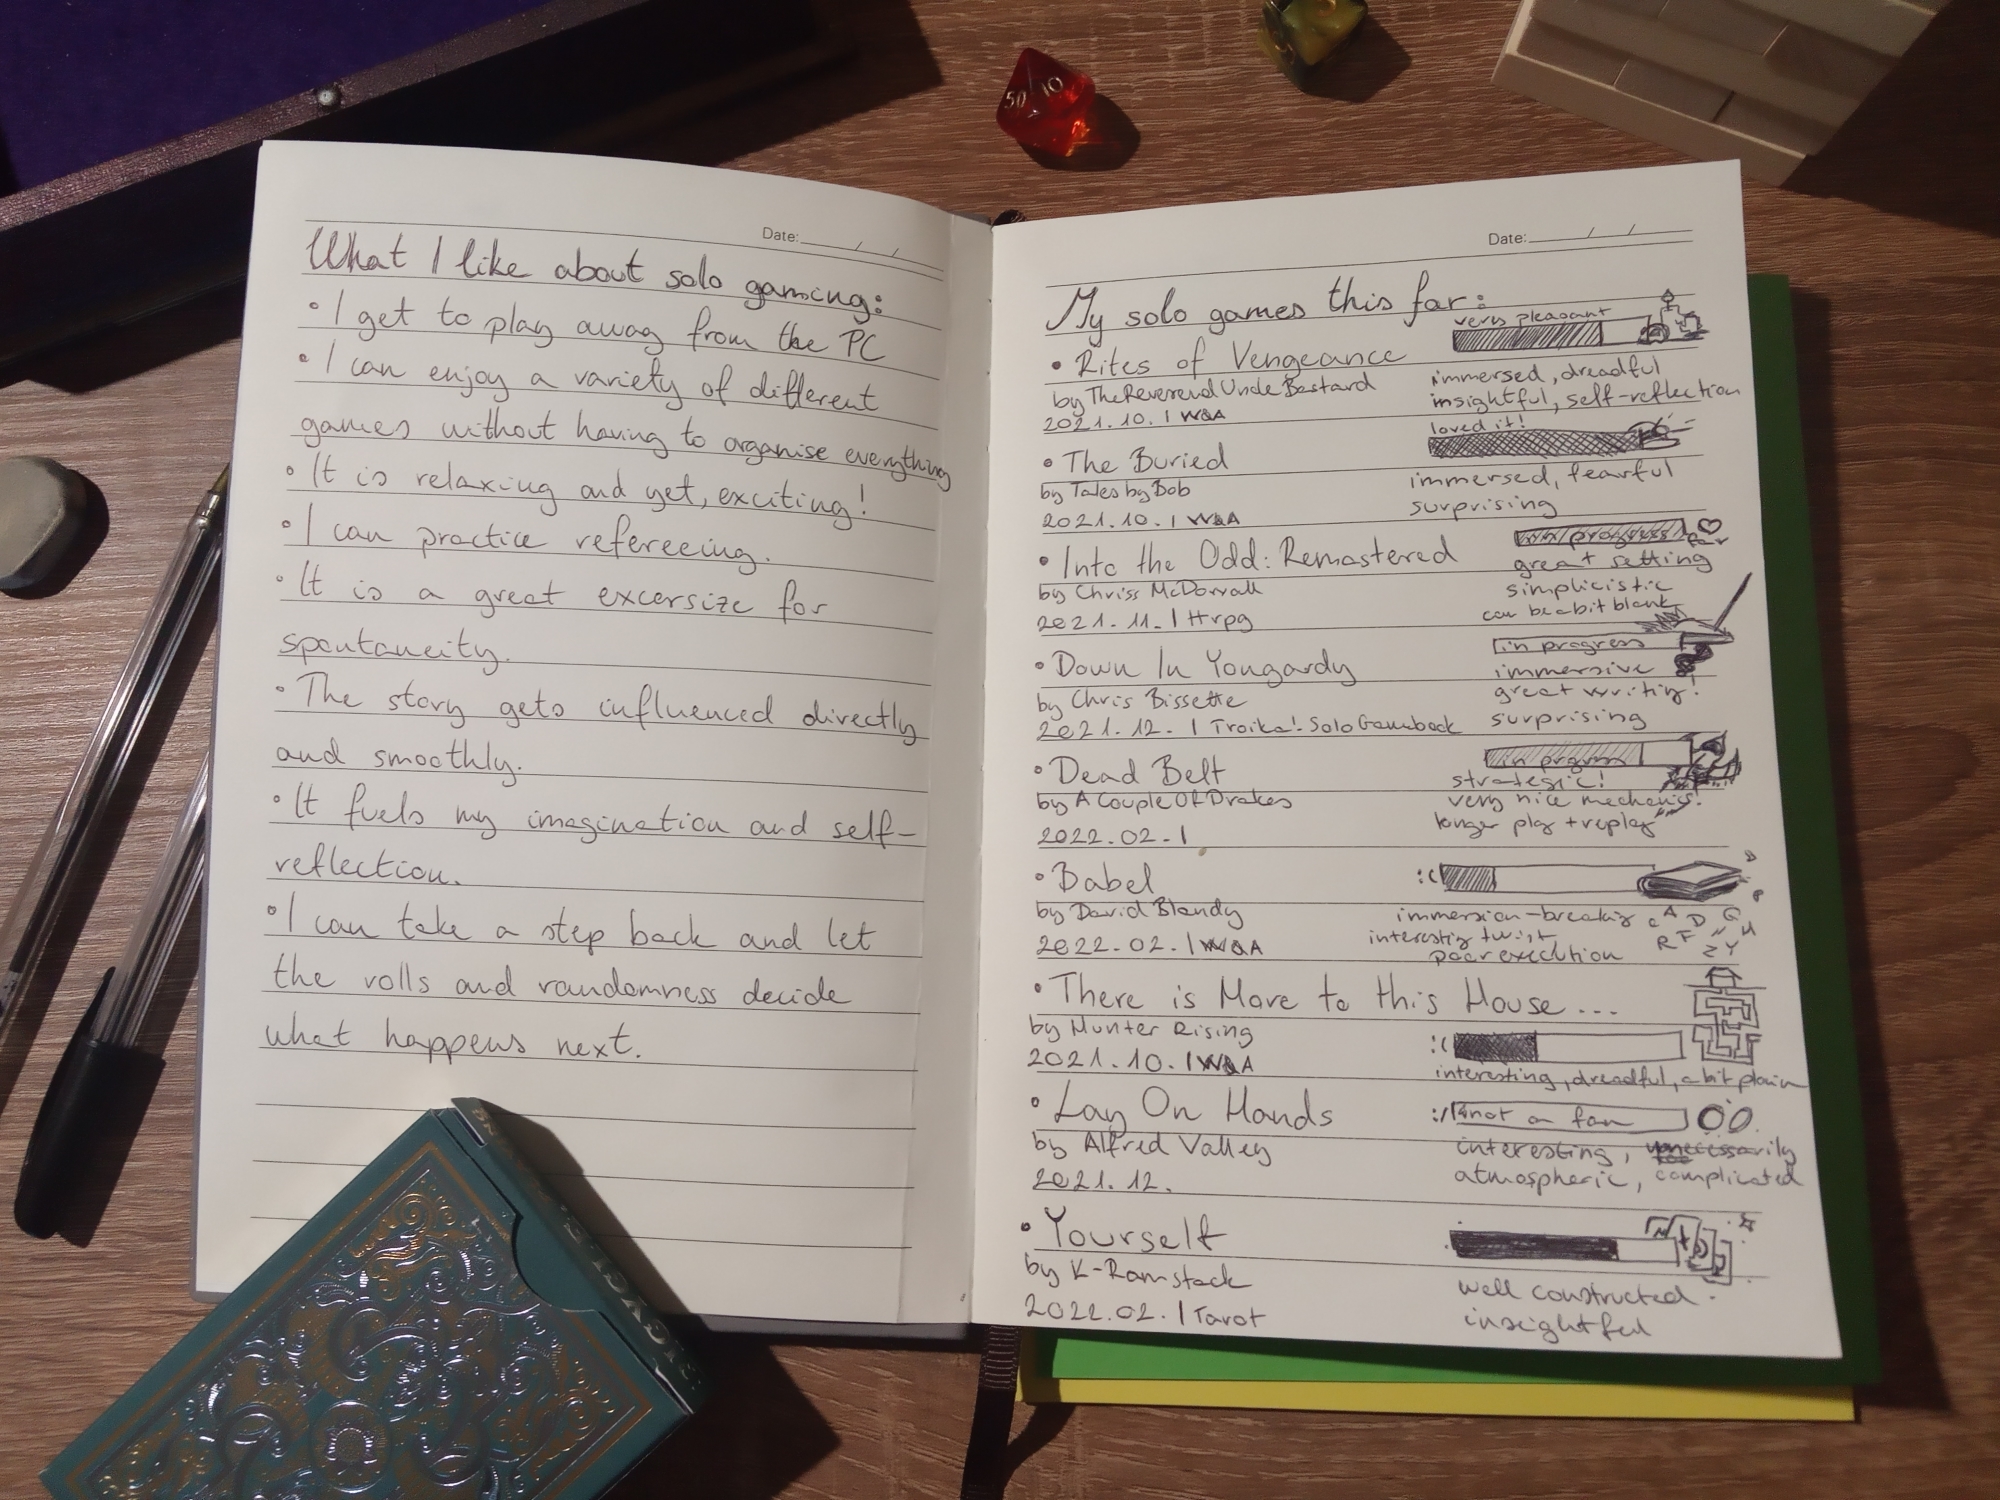 Date: / /
What I like about solo gaming:
• I get to play away from the PC
• I can enjoy a variety of different
games without having to organise everything
• It is relaxing and yet, exciting!
• I can practice refereeing.
• It is a great excersize for
spontaneity.
• The story gets influenced directly
and smoothly.
• It fuels my imagination and self-
reflection.
• I can take a step back and let
the rolls and randomness decide
what happens next.
50 10
Date: / /
My solo games this far:
very pleasant
• Rites of Vengeance
by The Reverend Uncle Bastard
2021.10. | W&A
immersed, dreadful
insightful, self-reflection
loved it!
• The Buried
by Tales by Bob
2021.10. | W&A
immersed, fearful
surprising
• Into the Odd: Remastered
by Chriss McDowall
2021.11. | ttrpg
in progress
great setting
simplicistic
can be a bit blank
• Down In Yongardy
by Chris Bissette
2021.12. | Troika! Solo Gamebook
in progress
immersive
great writing!
surprising
• Dead Belt
by A Couple Of Drakes
2022.02. |
in progress
strategic!
very nice mechanis!
longer play + replay
• Babel
by David Blandy
2022.02. | W&A
:(
immersion-breaking
interesting twist
poor execution
• There is More to this House...
by Hunter Rising
2021.10. | W&A
:(
interesting, dreadful, a bit plain
• Lay On Hands
by Alfred Valley
2021.12.
:/ not a fan
interesting, unnecessarily
atmospheric, complicated
• Yourself
by K-Ramstack
2022.02. | Tarot
well constructed
insightful